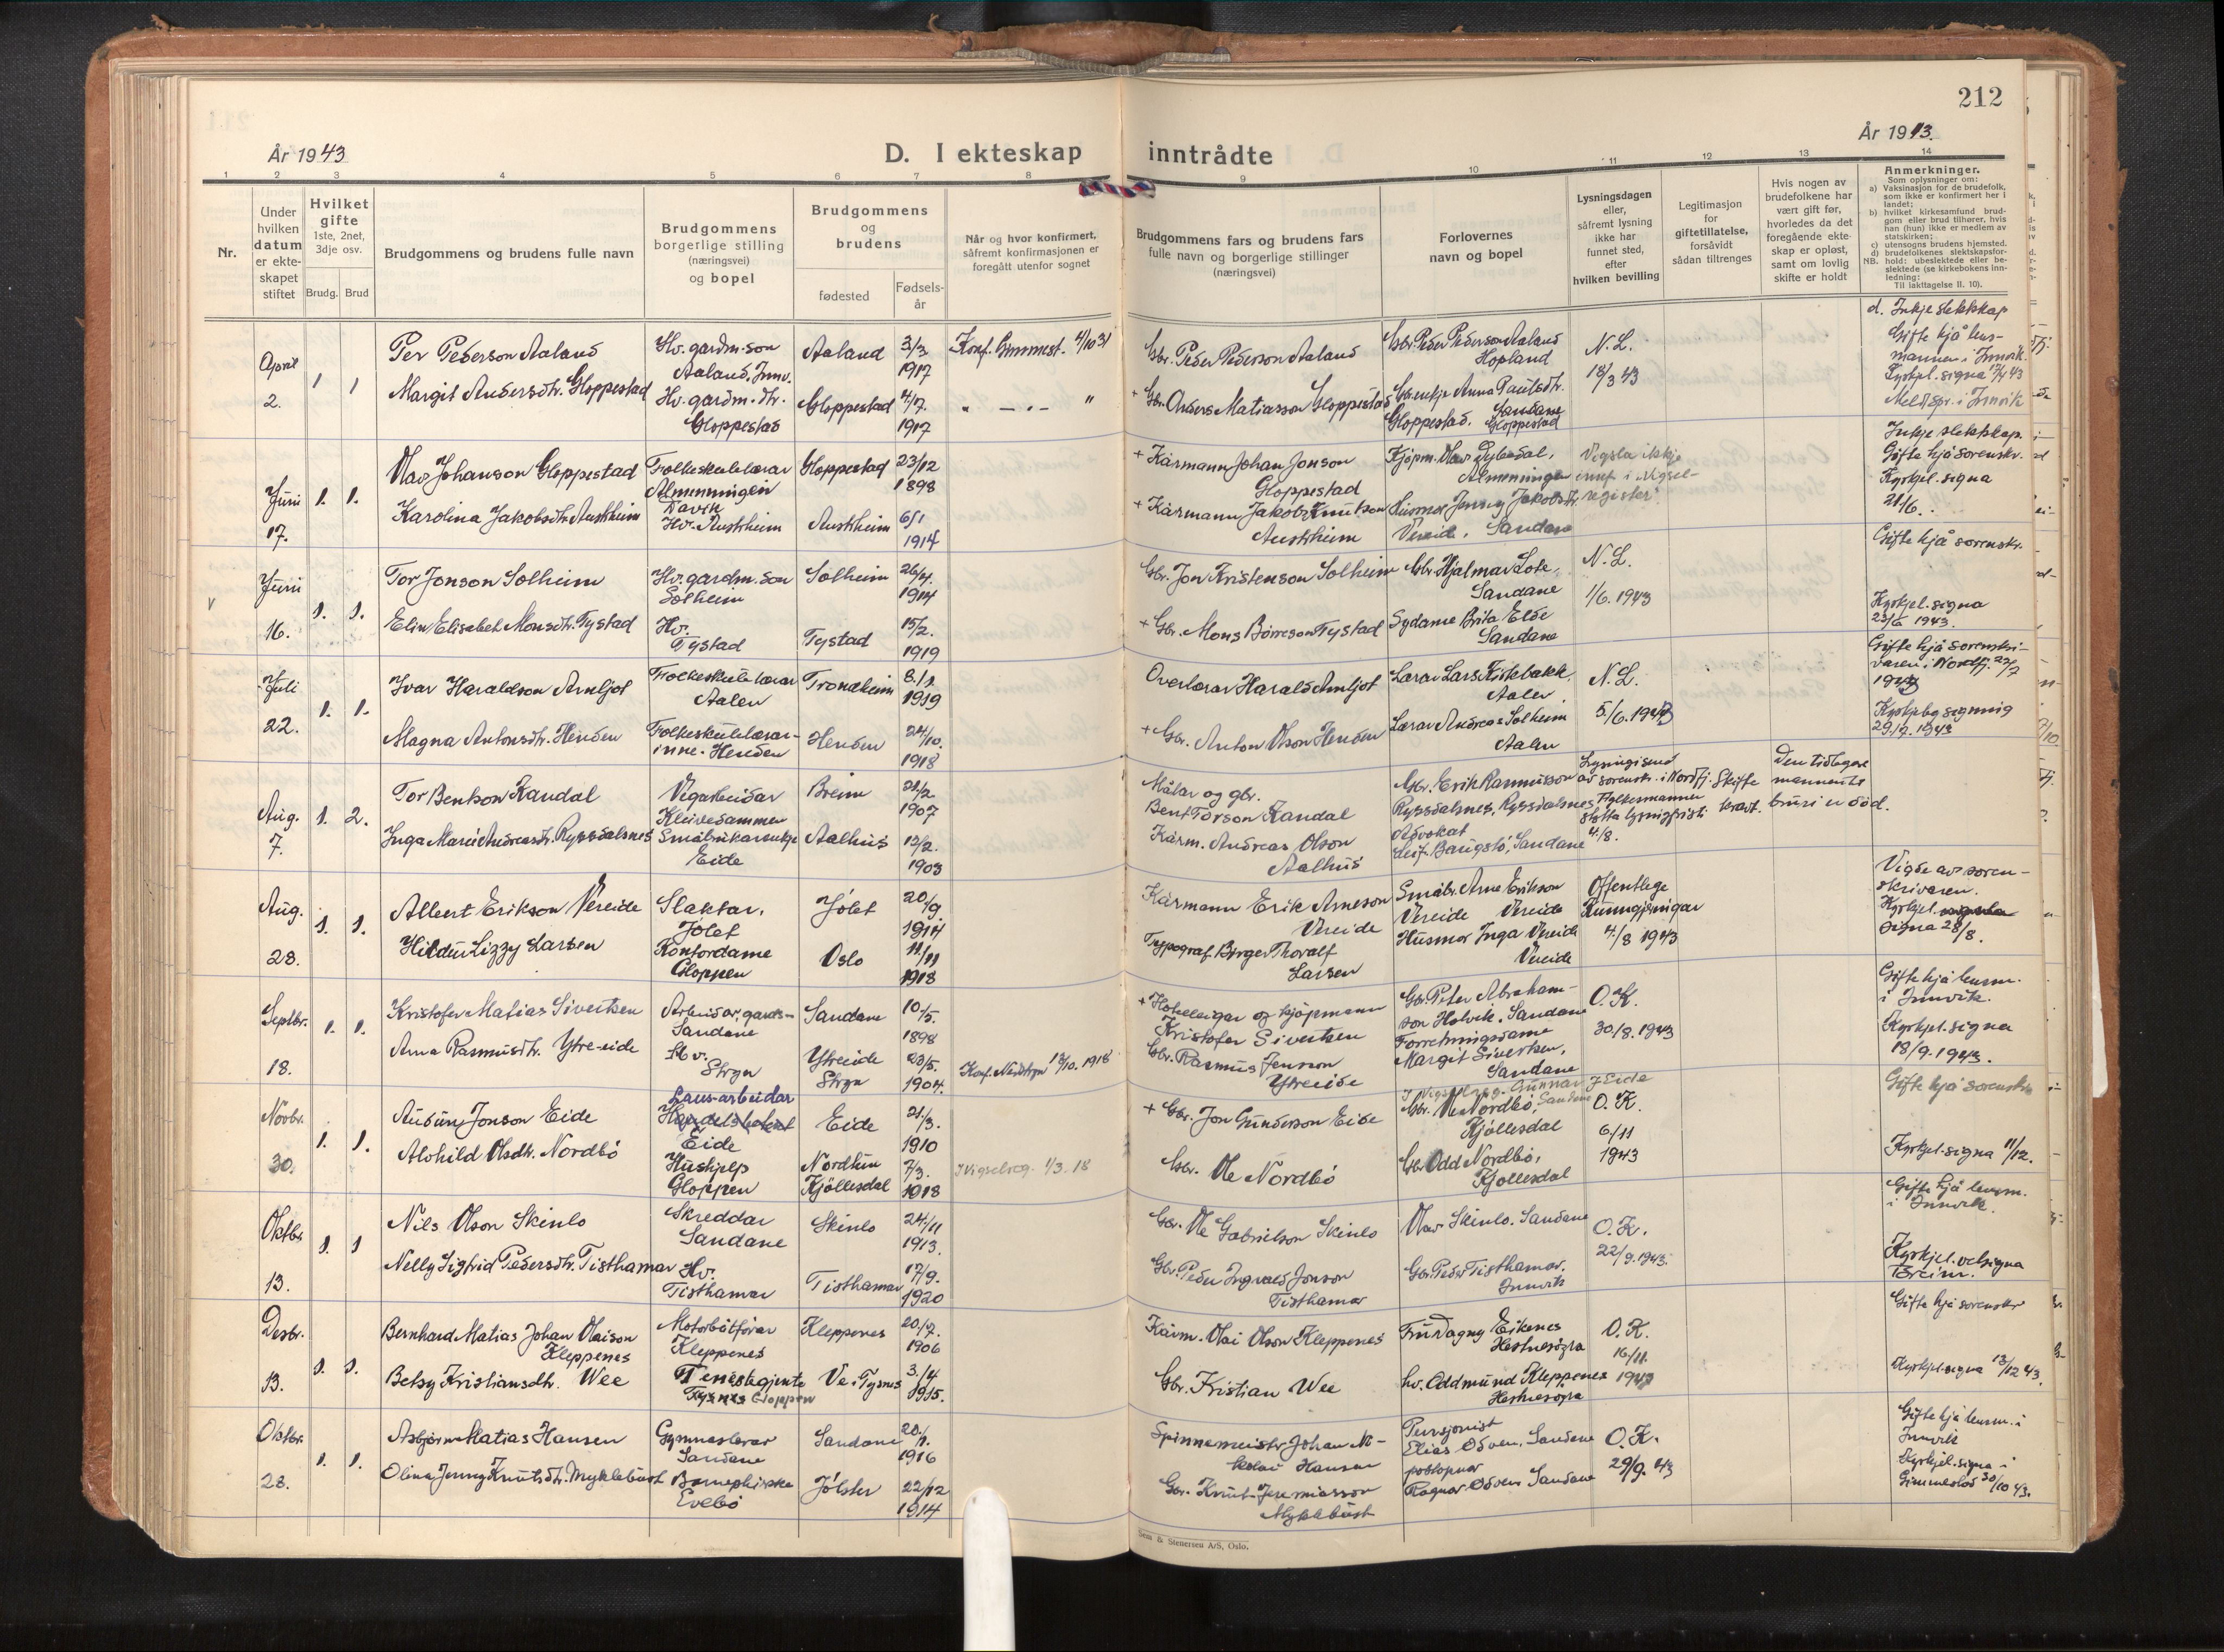 212
År 1943
D. I ekteskap
inntrådte
År 1943.
1 2 3 4 5 6 7 8 9 10 11 12 13 14
Nr.
Under hvilken datum er ekteskapet stiftet
Hvilket gifte
1ste, 2net, 3dje osv.
Brudg. Brud
Brudgommens og brudens fulle navn
Brudgommens borgerlige stilling (næringsvei) og bopel
Brudgommens og brudens
fødested
Fødselsår
Når og hvor konfirmert, såfremt konfirmasjonen er foregått utenfor sognet
Brudgommens fars og brudens fars fulle navn og borgerlige stillinger (næringsvei)
Forlovernes navn og bopel
Lysningsdagen eller, såfremt lysning ikke har funnet sted, efter hvilken bevilling
Legitimasjon for giftetillatelse, forsåvidt sådan tiltrenges
Hvis nogen av brudefolkene har vært gift før, hvorledes da det foregående ekteskap er opløst, samt om lovlig skifte er holdt
Anmerkninger.
Som oplysninger om:
a) Vaksinasjon for de brudefolk, som ikke er konfirmert her i landet;
b) hvilket kirkesamfund brudgom eller brud tilhører, hvis han (hun) ikke er medlem av statskirken;
c) utensogns brudens hjemsted.
d) brudefolkenes slektskapsforhold: ubeslektede eller beslektede (se kirkebokens innledning:
NB.
Til iakttagelse II. 10).
April 2. 1 1
Per Pederson Aaland
Hv. gardm. son Aaland, Innv.
Aaland
3/3 1917
Konf. Gimmest. 4/10 31
Gbr. Peder Pederson Aaland
Gbr. Peder Pederson Aaland Hopland
N. L. 18/3 43
d. Inkje slektskap
Gifte hjå lensmannen i Innvik.
Kyrkjel. signa 17/4 43
Meldt spr. i Innvik
Margit Andersdtr. Gloppestad
Hv. gardm. dtr. Gloppestad
Gloppestad
4/7. 1917
" — " — "
+ Gbr. Anders Matiasson Gloppestad
Gbr. enkje Anna Paulsdtr. Gloppestad. Sandane Gloppestad
Juni 17. 1. 1.
Olav Johanson Gloppestad
Folkeskulelærar Almenningen Davik
Gloppestad
23/12 1898
+ Kårmann Johan Jonson Gloppestad
Kjøpm. Olav Almenningen
Vigsla ikkje innf. i Vigselregister.
Inkje slektskap.
Gifte hjå sorenskr.
Kyrkjel. signa 21/6.
Karolina Jakobsdtr. Austrheim
Hv. Austrheim
Austrheim
6/1 1914
+ Kårmann Jakob Knutson Austrheim
Husmor Jenny Jakobsdtr. Vereide, Sandane
V
Juni 16. 1. 1.
Tor Jonson Solheim
Hv. gardm. son Solheim
Solheim
26/4. 1914
Gbr. Jon Kristenson Solheim
Gbr. Hjalmar Lote, Sandane
N. L. 1/6. 1943
Gifte hjå sorenskr.
Elin Elisabet Monsdtr. Tystad
Hv. Tystad
Tystad
15/2. 1919
+ Gbr. Mons Børreson Tystad
Sydame Brita Elde Sandane
Kyrkjel. signa 23/6 1943.
Juli 22. 1. 1.
Ivar Haraldson Arnljot
Folkeskulelærar Aalen
Trondheim
8/1. 1919
Overlærar Harald Arnljot
Lærar Lars Kirkbakk, Aalen
N. L. 5/6. 1943
Gifte hjå sorenskrivaren i Nordfj. 22/7 1943
Magna Antonsdtr. Henden
Folkeskulelærarinne. Henden
Henden
24/10. 1918
+ Gbr. Anton Olson Henden
Lærar Andreas Solheim Aalen
Kyrkjeleg signing 29.17. 1943
Aug. 7. 1. 2.
Tor Bentson Randal
Vegarbeidar Kleivedammen
Breim
21/2 1907
Målar og gbr. Bent Torson Randal
Gbr. Erik Rasmusson Ryssdalsnes, Ryssdalsnes
Lysningi send av sorenskr. i Nordfj. Fylkesmannen stytta lysingsfristi 4/8.
Skifte kravt.
Den tidlegare mannen til bruri er død.
Inga Marie Andreasdtr. Ryssdalsnes
Småbrukarenkje Eide
Aalhus
12/2. 1903
Kårm. Andreas Olson Aalhus
Advokat Leif Baugstø, Sandane
Aug. 28. 1. 1.
Albert Erikson Vereide
Slaktar, Jølst
Jølst
20/9 1914
Kårmann Erik Arneson Vereide
Småbr. Arne Erikson Vereide Vereide
Offentlege Kunngjeringar 4/8 1943
Vigde av sorenskrivaren.
Kyrkjel. signa 28/8.
Hildur Lizzy Larsen
Kontordame Gloppen
Oslo
11/11 1918
Typograf Birger Thoralf Larsen
Husmor Inga Vereide Vereide
Septbr. 18. 1. 1.
Kristofer Matias Sivertsen
Arbeidar, gards- Sandane
Sandane
10/5. 1898
+ Hotelleigar og kjøpmann Kristofer Sivertsen
Gbr. Peter Abrahamson Holvik, Sandane
O. K. 30/8. 1943
Gifte hjå lensm. i Innvik.
Anna Rasmusdtr. Ytre-eide
Hv. Stryn
Ytreeide Stryn
23/5. 1904.
Konf. Nedstryn 13/10. 1918
Gbr. Rasmus Jenson Ytreeide
Forretningsdame Margit Sivertsen, Sandane
Kyrkjel. signa 18/9. 1943.
Novbr. 30. 1. 1.
Audun Jonson Eide
Lausarbeidar Eide
Eide
21/3. 1910
+ Gbr. Jon Gunderson Eide
I Vigselreg. Gunnar J Eide Sandane
Gbr. Ole Nordbø, Kjøllesdal
O. K. 6/11 1943
Gifte hjå sorenskr.
Alvhild Olsdtr. Nordbø
Hushjelp Gloppen
Kjøllesdal
7/3. 1918
I Vigselreg. 1/3. 18
Gbr. Ole Nordbø
Gbr. Odd Nordbø, Kjøllesdal
Kyrkjel. signa 11/12.
Oktbr. 13. 1. 1
Nils Olson Skinlo
Skreddar Sandane
Skinlo
24/11 1913.
Gbr. Ole Gabrielson Skinlo
Olav Skinlo. Sandane
O. K. 22/9. 1943.
Gifte hjå lensm. i Innvik.
Nelly Sigfrid Pedersdtr. Tisthamar
Hv. Tisthamar
Tisthamar
17/9. 1920
Gbr. Peder Ingvald Jonson Tisthamar
Gbr. Peder Tisthamar, Innvik
Kyrkjel. velsigna Breim.
Desbr. 13. 1. 1.
Bernhard Matias Johan Olaison Kleppenes
Motorbåtførar Kleppenes
Kleppenes
20/7. 1906
Kårm. Olai Olson Kleppenes
Fru Dagny Eikenes Hestnesøyra
O. K. 16/11. 1943
Gifte hjå sorenskr
Betsy Kristiansdtr. Wee
Tenestegjente Gloppen
Ve i Tysnes
3/4 1915.
Gbr. Kristian Wee
hv. Oddmund Kleppenes Hestnesøyra
Kyrkjel. signa 13/12 43.
Oktbr. 28. 1. 1.
Asbjørn Matias Hansen
Gymnaslærar Sandane
Sandane
20/1. 1916
Spinnemeister Johan Nikolai Hansen
Pensjonist Elias Ødven, Sandane
O. K. 29/9. 43
Gifte hjå lensm. i Innvik
Olina Jenny Knutsdtr. Myklebust
Barnepleierske Evebø
Jølster
22/12 1914
Gbr. Knut Jeremiasson Myklebust
postopnar Ragnar Ødven Sandane
Kyrkjel. signa i Gimmestad 30/10 43.
Sem & Stenersen A/S, Oslo.